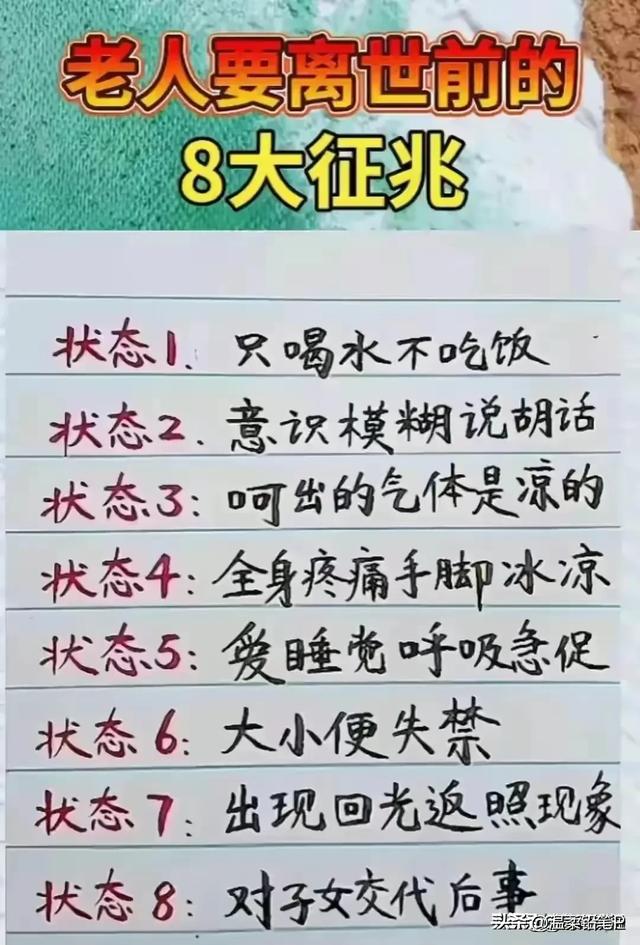 老人要离世前的
8大征兆
状态1、只喝水不吃饭
状态2、意识模糊说胡话
状态3:呵出的气体是凉的
状态4:全身疼痛手脚冰凉
状态5:爱睡觉呼吸急促
状态6:大小便失禁
状态7:出现回光返照现象
状态8:对子女交代后事
头条